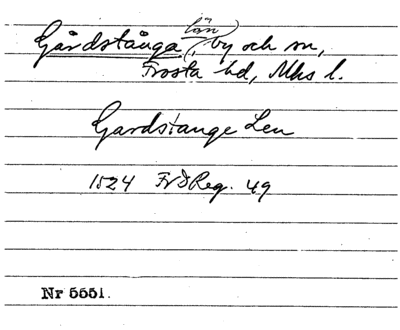 Gårdstånga län, by och sn,
Frosta hd, Mhs l.
Gardstange Len
1524 Fr I Reg. 49
Nr 5551.